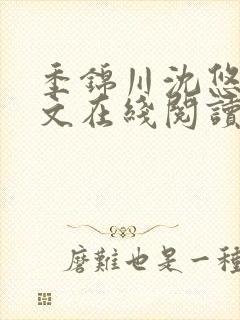 季錦川沈悠
文在綫閱讀
磨難也是一種